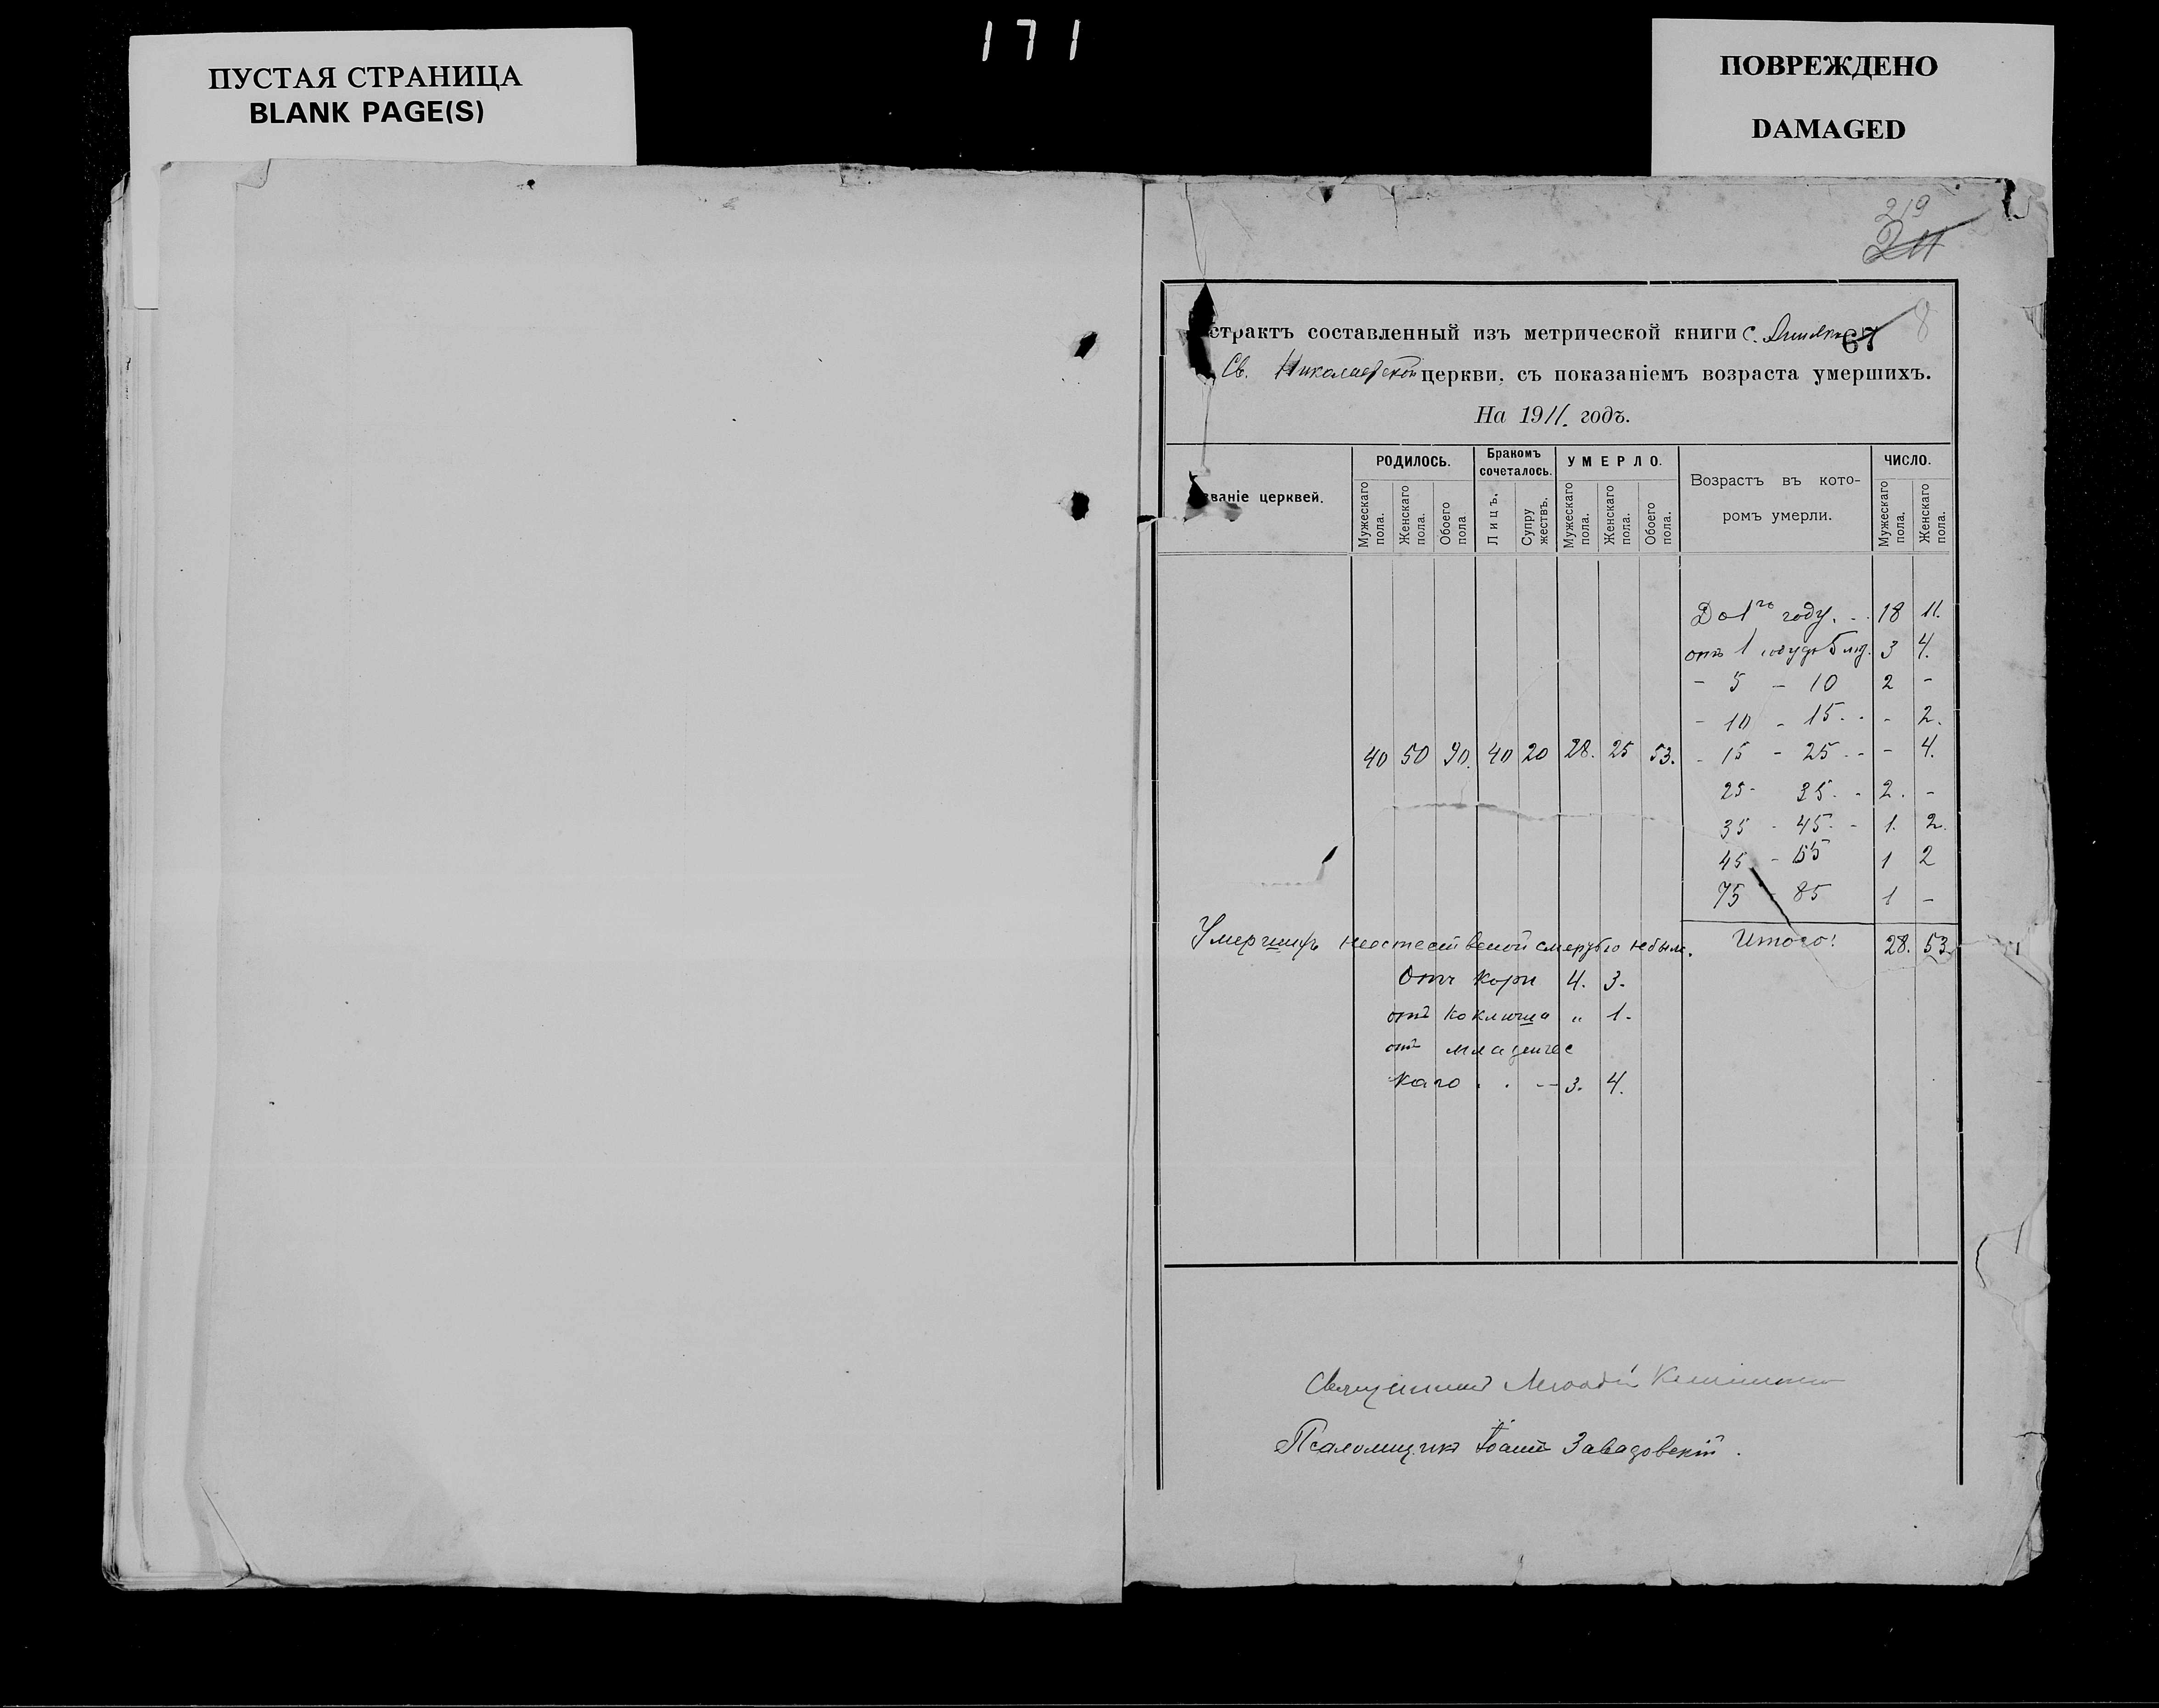 171
ПУСТАЯ СТРАНИЦА
BLANK PAGE(S)
ПОВРЕЖДЕНО
DAMAGED
219
211
8
страктъ составленный изъ метрической книги с. 67
Св. Николаевской церкви, съ показаніемъ возраста умершихъ.
На 1911. годъ.
званіе церквей.
РОДИЛОСЬ.
Бракомъ сочеталось.
УМЕРЛО.
Возрастъ въ кото-
ромъ умерли.
ЧИСЛО.
Мужескаго пола.
Женскаго пола.
Обоего пола
Лицъ.
Супру жествъ.
Мужескаго пола.
Женскаго пола.
Обоего пола.
Мужескаго пола.
Женскаго пола.
До 1го году. - . 18 11.
отъ 1 году до 5 лѣт. 3 4.
- 5 - 10 2 -
- 10 - 15. - - 2.
40 50 90. 40 20 28. 25 53. - 15 - 25 - - - 4.
25 - 35. - 2. -
35 - 45. - 1. 2.
45 - 55 1 2
75 - 85 1 -
Умершихъ неестественой смертью небыло. Итого: 28. 53.
Отъ кори 4. 3.
отъ коклюша „ 1.
отъ младенчес
каго . . -- 3. 4.
Священникъ
Псаломщикъ Іоаннъ Завадовскій.